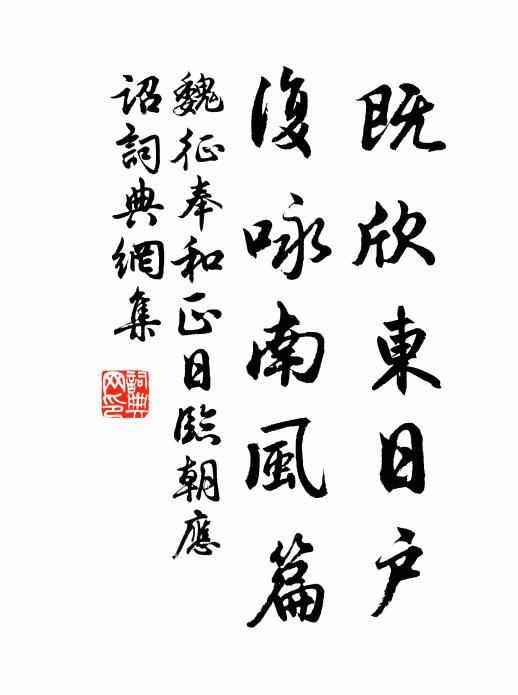 既欣東日户
復咏南風篇
魏征奉和正日臨朝應
詔詞典網集
詞典
网印